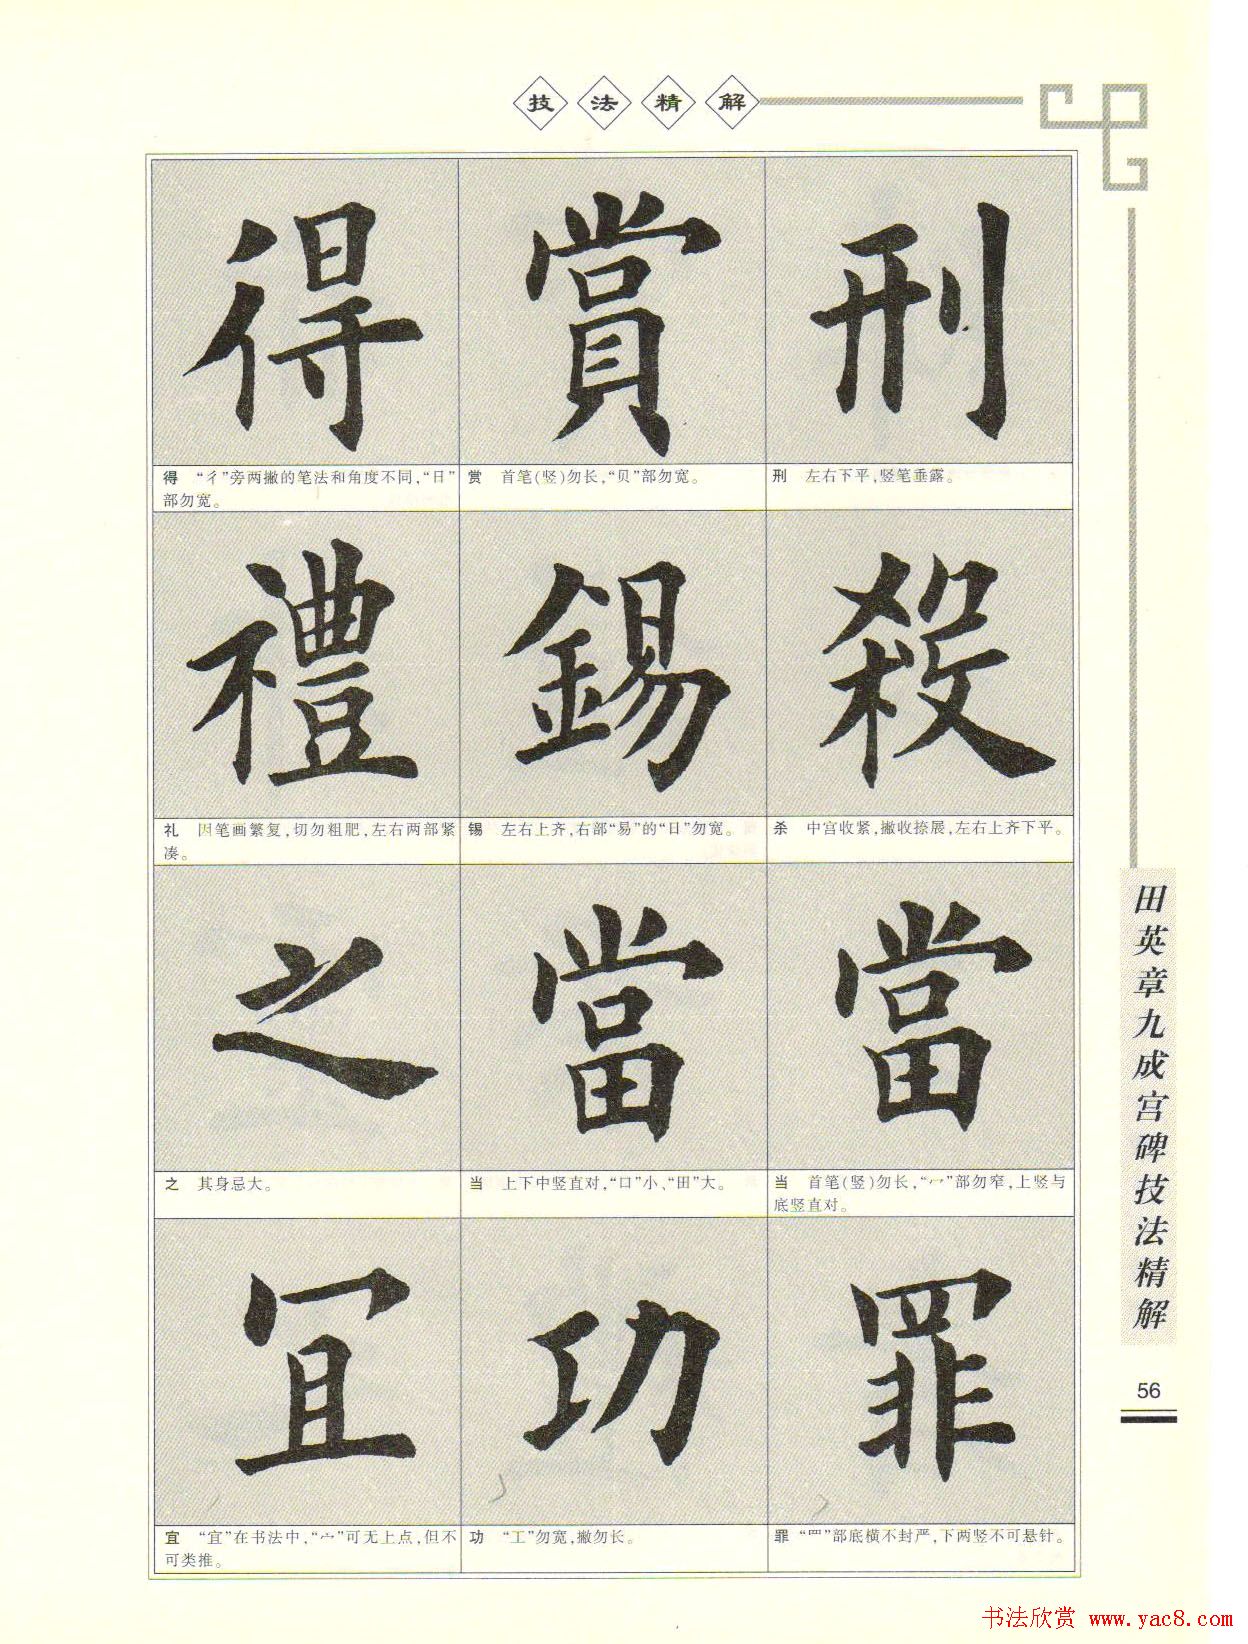 技法精解
得 賞 刑
得 “彳”旁两撇的笔法和角度不同,“日”
部勿宽。
赏 首笔(竖)勿长,“贝”部勿宽。
刑 左右下平,竖笔垂露。
禮 錫 殺
礼 因笔画繁复,切勿粗肥,左右两部紧
凑。
锡 左右上齐,右部“易”的“日”勿宽。
杀 中宫收紧,撇收捺展,左右上齐下平。
之 當 當
之 其身忌大。
当 上下中竖直对,“口”小、“田”大。
当 首笔(竖)勿长,“冖”部勿窄,上竖与
底竖直对。
冝 功 罪
宜 “宜”在书法中,“宀”可无上点,但不
可类推。
功 “工”勿宽,撇勿长。
罪 “罒”部底横不封严,下两竖不可悬针。
田英章九成宫碑技法精解
56
书法欣赏 www.yac8.com